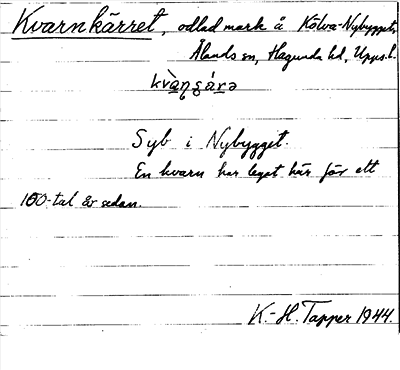 Kvarnkärret, odlad mark å Kölva-Nybygget,
Ålands sn, Hagunda hd, Upps. l.
Syb i Nybygget.
En kvarn har legat här för ett
100-tal år sedan.
K.-H. Tapper 1944.